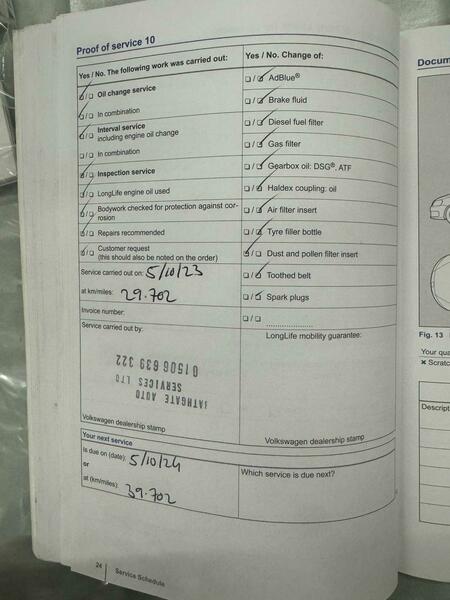 Proof of service 10
Yes / No. The following work was carried out:
Oil change service
In combination
Interval service
including engine oil change
In combination
Inspection service
LongLife engine oil used
Bodywork checked for protection against cor-
rosion
Repairs recommended
Customer request
(this should also be noted on the order)
Service carried out on: 5/10/23
at km/miles: 29.702
Invoice number:
Service carried out by:
01506 639 322
SERVICES LTD
BATHGATE AUTO
Volkswagen dealership stamp
Yes / No. Change of:
AdBlue®
Brake fluid
Diesel fuel filter
Gas filter
Gearbox oil: DSG®, ATF
Haldex coupling: oil
Air filter insert
Tyre filler bottle
Dust and pollen filter insert
Toothed belt
Spark plugs
LongLife mobility guarantee:
Volkswagen dealership stamp
Your next service
Is due on (date): 5/10/24
or
at (km/miles): 39.702
Which service is due next?
24 Service Schedule
Docum
Fig. 13
Your qua
✖ Scratc
Descript